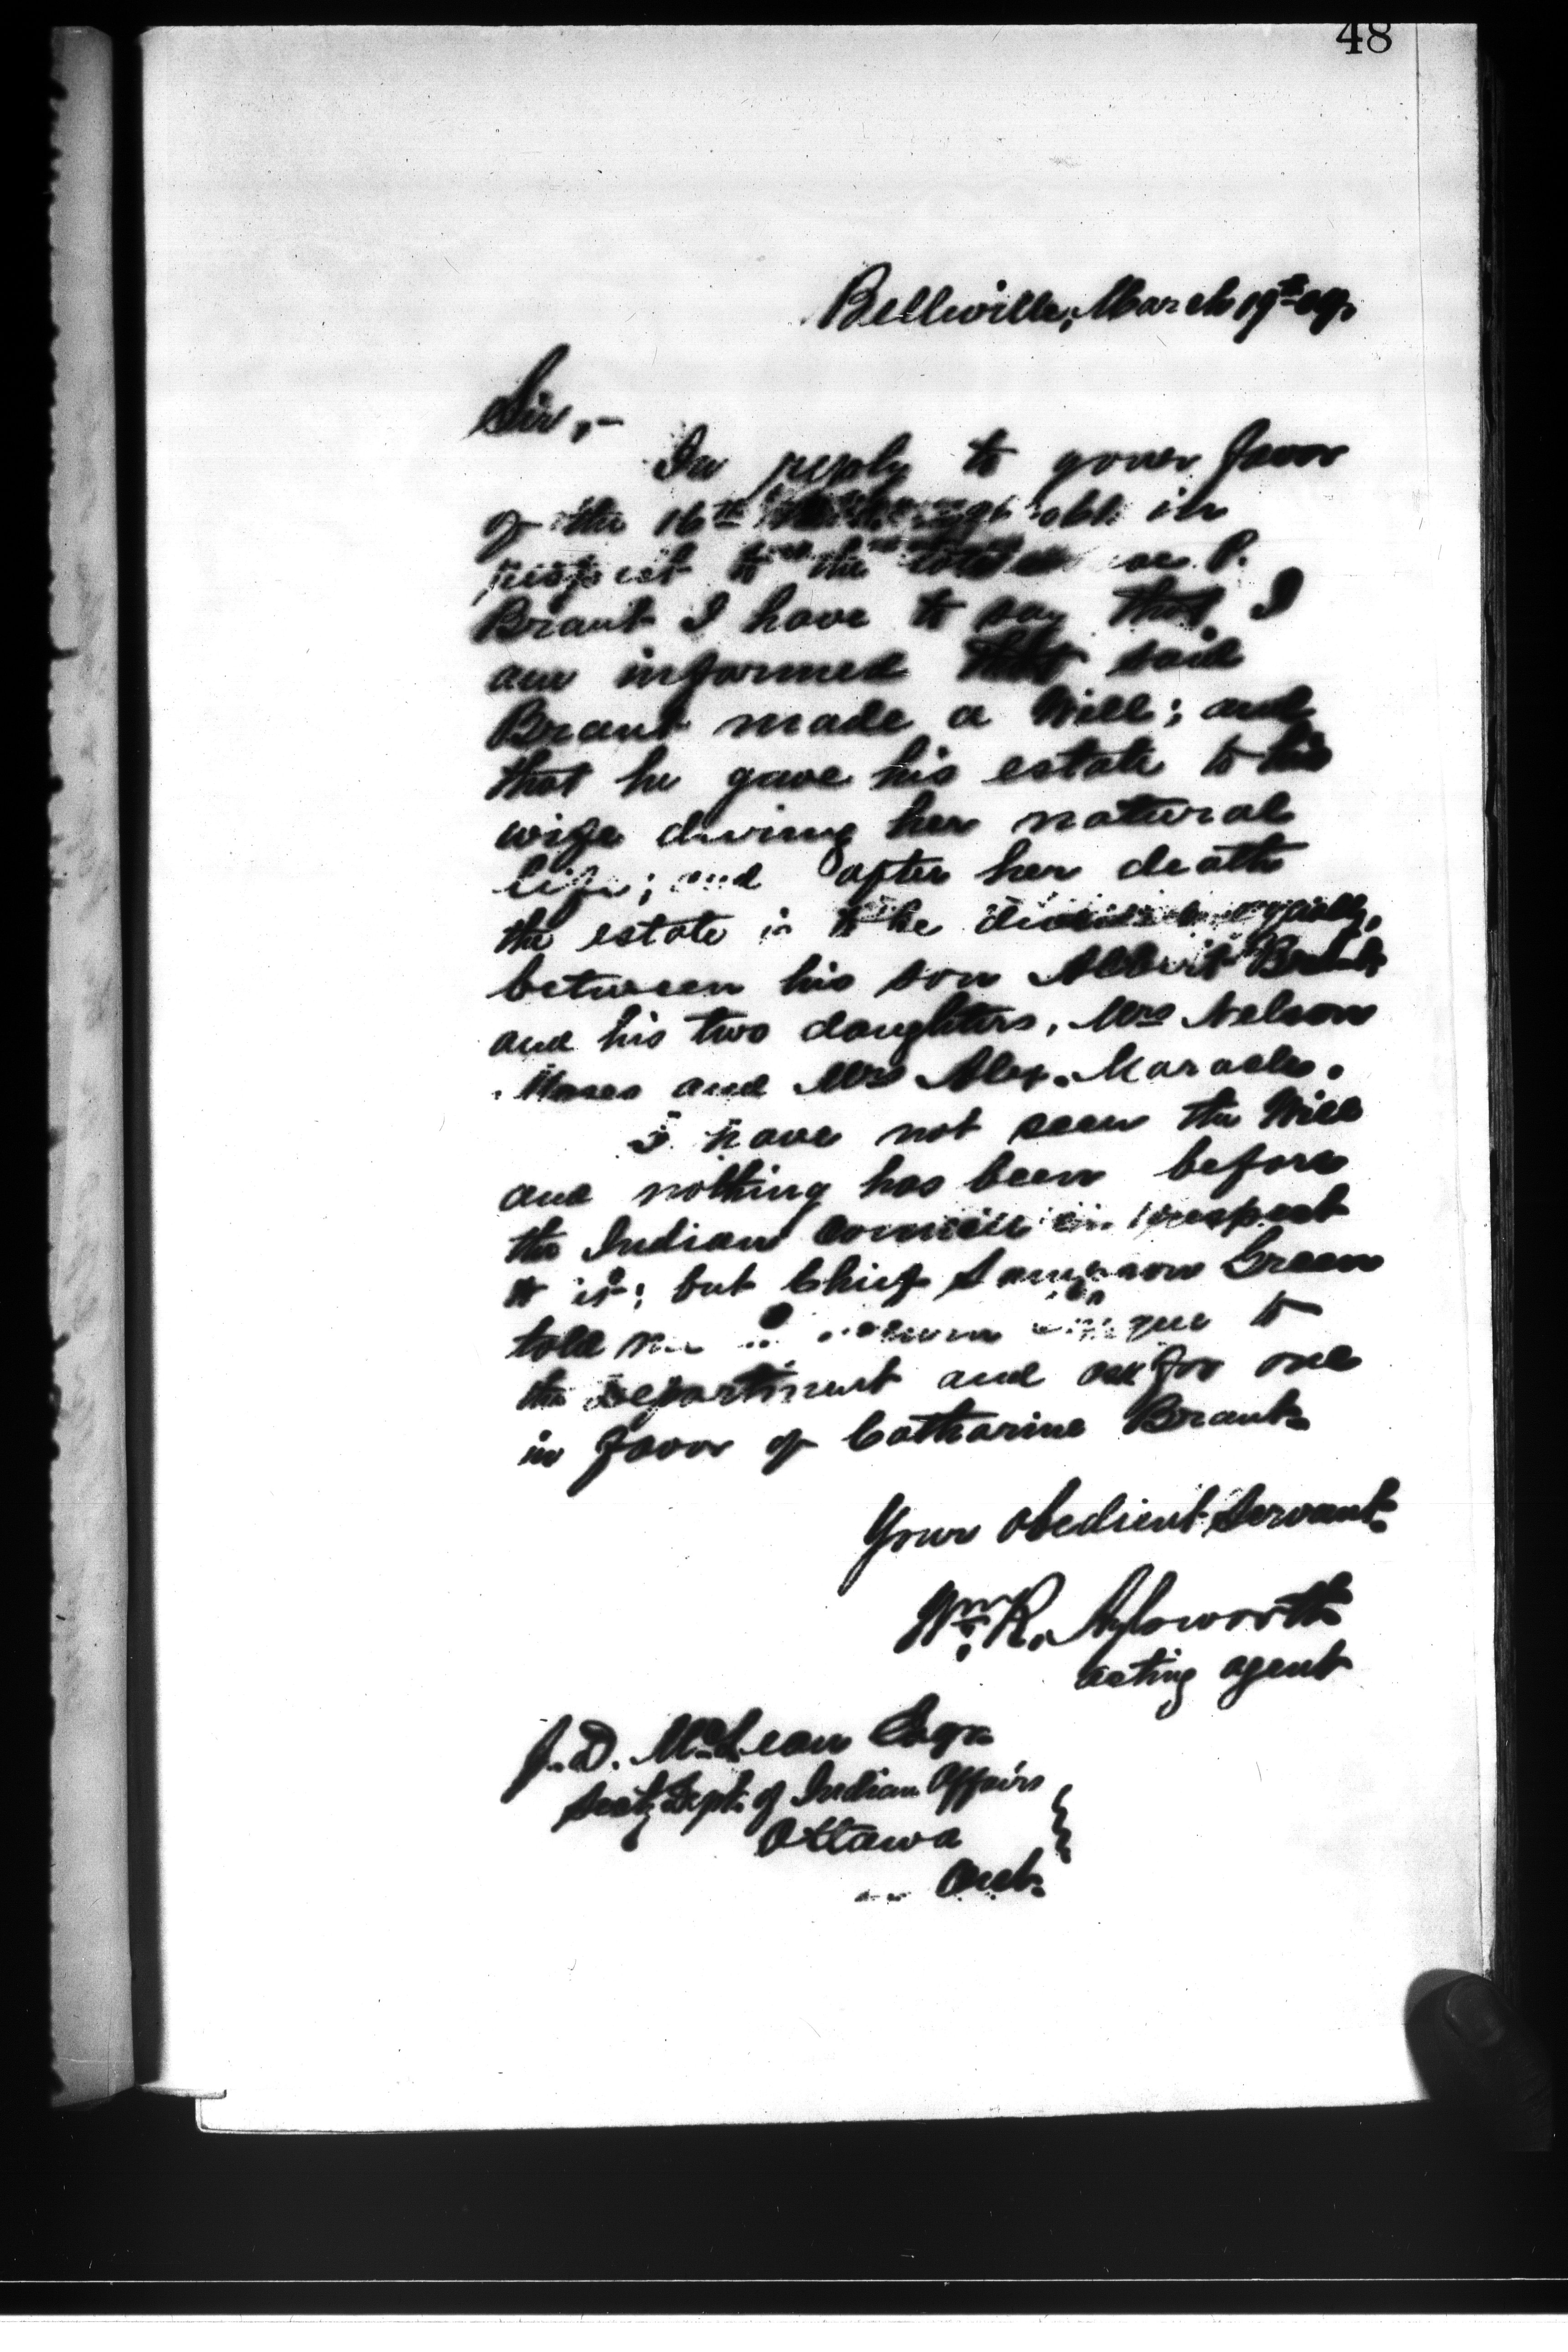 48
Belleville, March 19th 09.
Sir,-
In reply to your favor
of the 16th in
respect to the P.
Brant I have to say that I
am informed that said
Brant made a Will; and
that he gave his estate to his
wife during her natural
life; and after her death
the estate is to be divided equally,
between his son Albert Brant
and his two daughters, Mrs Nelson
Moses and Mrs Alex. Maracle.
I have not seen the Will
and nothing has been before
the Indian Council in respect
to it; but Chief Sampson Green
told to
the Department and ask for one
in favor of Catharine Brant.
Your obedient Servant.
Wm R. Aylsworth
acting agent
J. D. McLean Esqr
Secty Dept. of Indian Affairs
Ottawa
Ont.